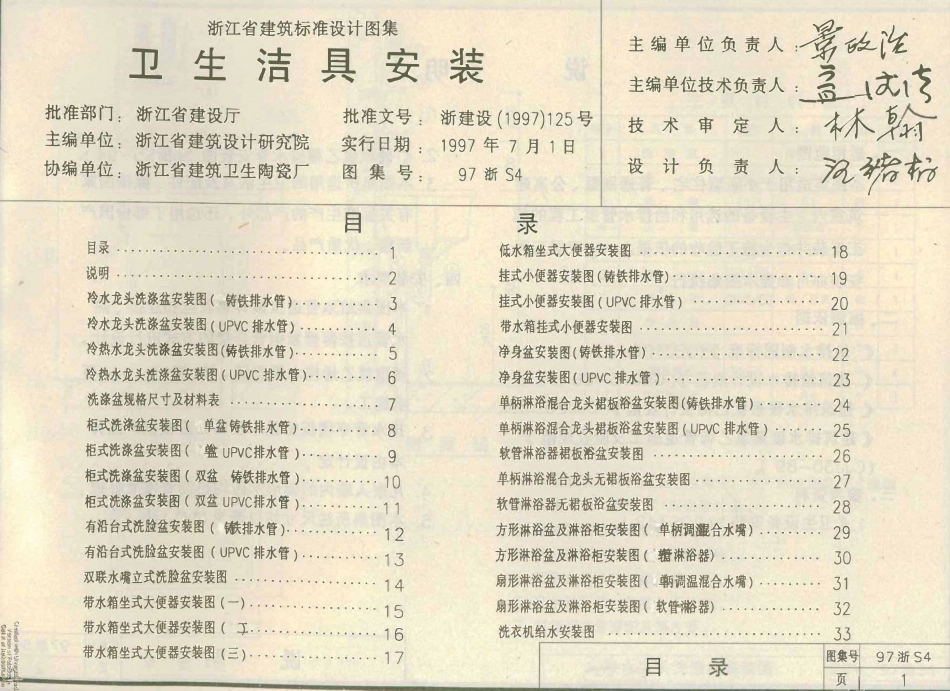 浙江省建筑标准设计图集
卫生洁具安装
批准部门：浙江省建设厅
批准文号：浙建设(1997)125号
主编单位：浙江省建筑设计研究院
实行日期：1997年7月1日
协编单位：浙江省建筑卫生陶瓷厂
图集号：97浙S4
主编单位负责人：
主编单位技术负责人：
技术审定人：林翰
设计负责人：
目录
目录 1
说明 2
冷水龙头洗涤盆安装图(铸铁排水管) 3
冷水龙头洗涤盆安装图(UPVC排水管) 4
冷热水龙头洗涤盆安装图(铸铁排水管) 5
冷热水龙头洗涤盆安装图(UPVC排水管) 6
洗涤盆规格尺寸及材料表 7
柜式洗涤盆安装图(单盆铸铁排水管) 8
柜式洗涤盆安装图(单盆UPVC排水管) 9
柜式洗涤盆安装图(双盆铸铁排水管) 10
柜式洗涤盆安装图(双盆UPVC排水管) 11
有沿台式洗脸盆安装图(铸铁排水管) 12
有沿台式洗脸盆安装图(UPVC排水管) 13
双联水嘴立式洗脸盆安装图 14
带水箱坐式大便器安装图(一) 15
带水箱坐式大便器安装图(二) 16
带水箱坐式大便器安装图(三) 17
低水箱坐式大便器安装图 18
挂式小便器安装图(铸铁排水管) 19
挂式小便器安装图(UPVC排水管) 20
带水箱挂式小便器安装图 21
净身盆安装图(铸铁排水管) 22
净身盆安装图(UPVC排水管) 23
单柄淋浴混合龙头裙板浴盆安装图(铸铁排水管) 24
单柄淋浴混合龙头裙板浴盆安装图(UPVC排水管) 25
软管淋浴器裙板浴盆安装图 26
单柄淋浴混合龙头无裙板浴盆安装图 27
软管淋浴器无裙板浴盆安装图 28
方形淋浴盆及淋浴柜安装图(单柄调温混合水嘴) 29
方形淋浴盆及淋浴柜安装图(软管淋浴器) 30
扇形淋浴盆及淋浴柜安装图(单柄调温混合水嘴) 31
扇形淋浴盆及淋浴柜安装图(软管淋浴器) 32
洗衣机给水安装图 33
目录
图集号 97浙S4
页 1